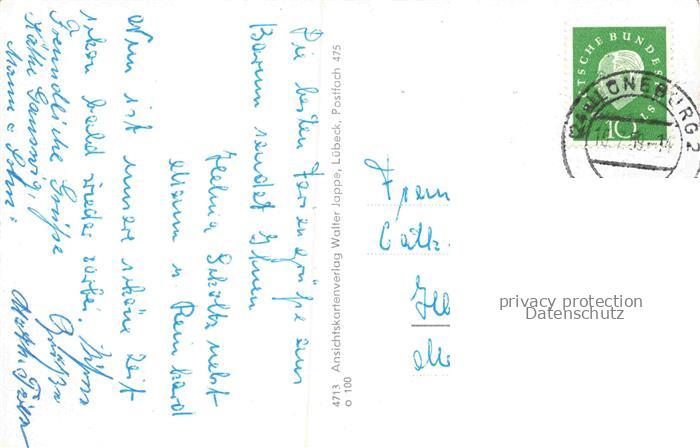 Die besten Feriengrüße aus
Barum sendet Ihnen
Helma Scholtz nebst
Mann u. Reinhard
Nun ist unsere schöne Zeit
schon bald wieder vorbei.
Freundliche Grüße
Käthe
Mann u. Sohn.
4713 Ansichtskartenverlag Walter Joppe, Lübeck, Postfach 475
o 100
DEUTSCHE BUNDESPOST
10
LÜNEBURG 2
Frau
Cäth.
privacy protection
Datenschutz